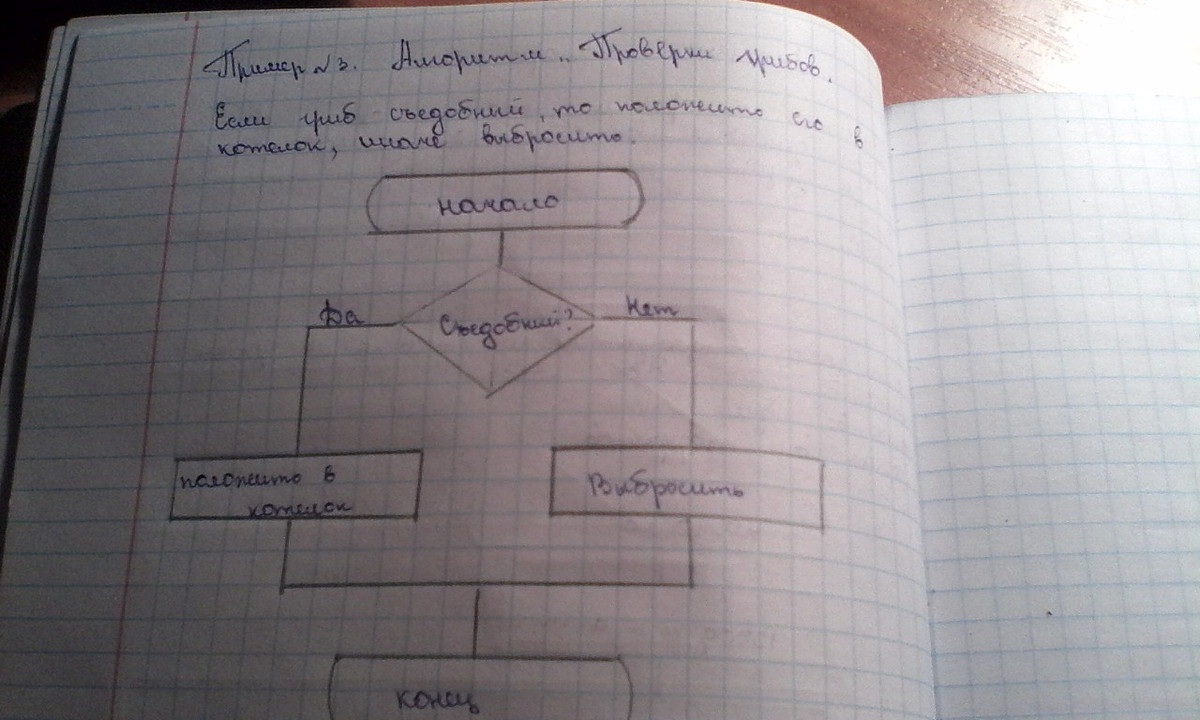 Пример №3. Алгоритм „Проверки грибов.
Если гриб съедобный, то положить его в
котелок, иначе выбросить.
начало
Да
Съедобный?
Нет
положить в
котелок
Выбросить
конец